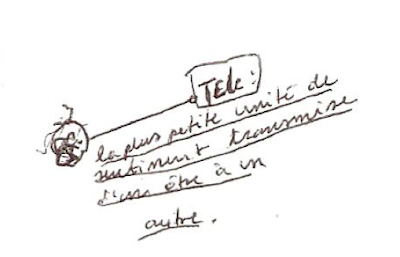 Télé :
la plus petite unité de
sentiment transmise
d'un être à un
autre.